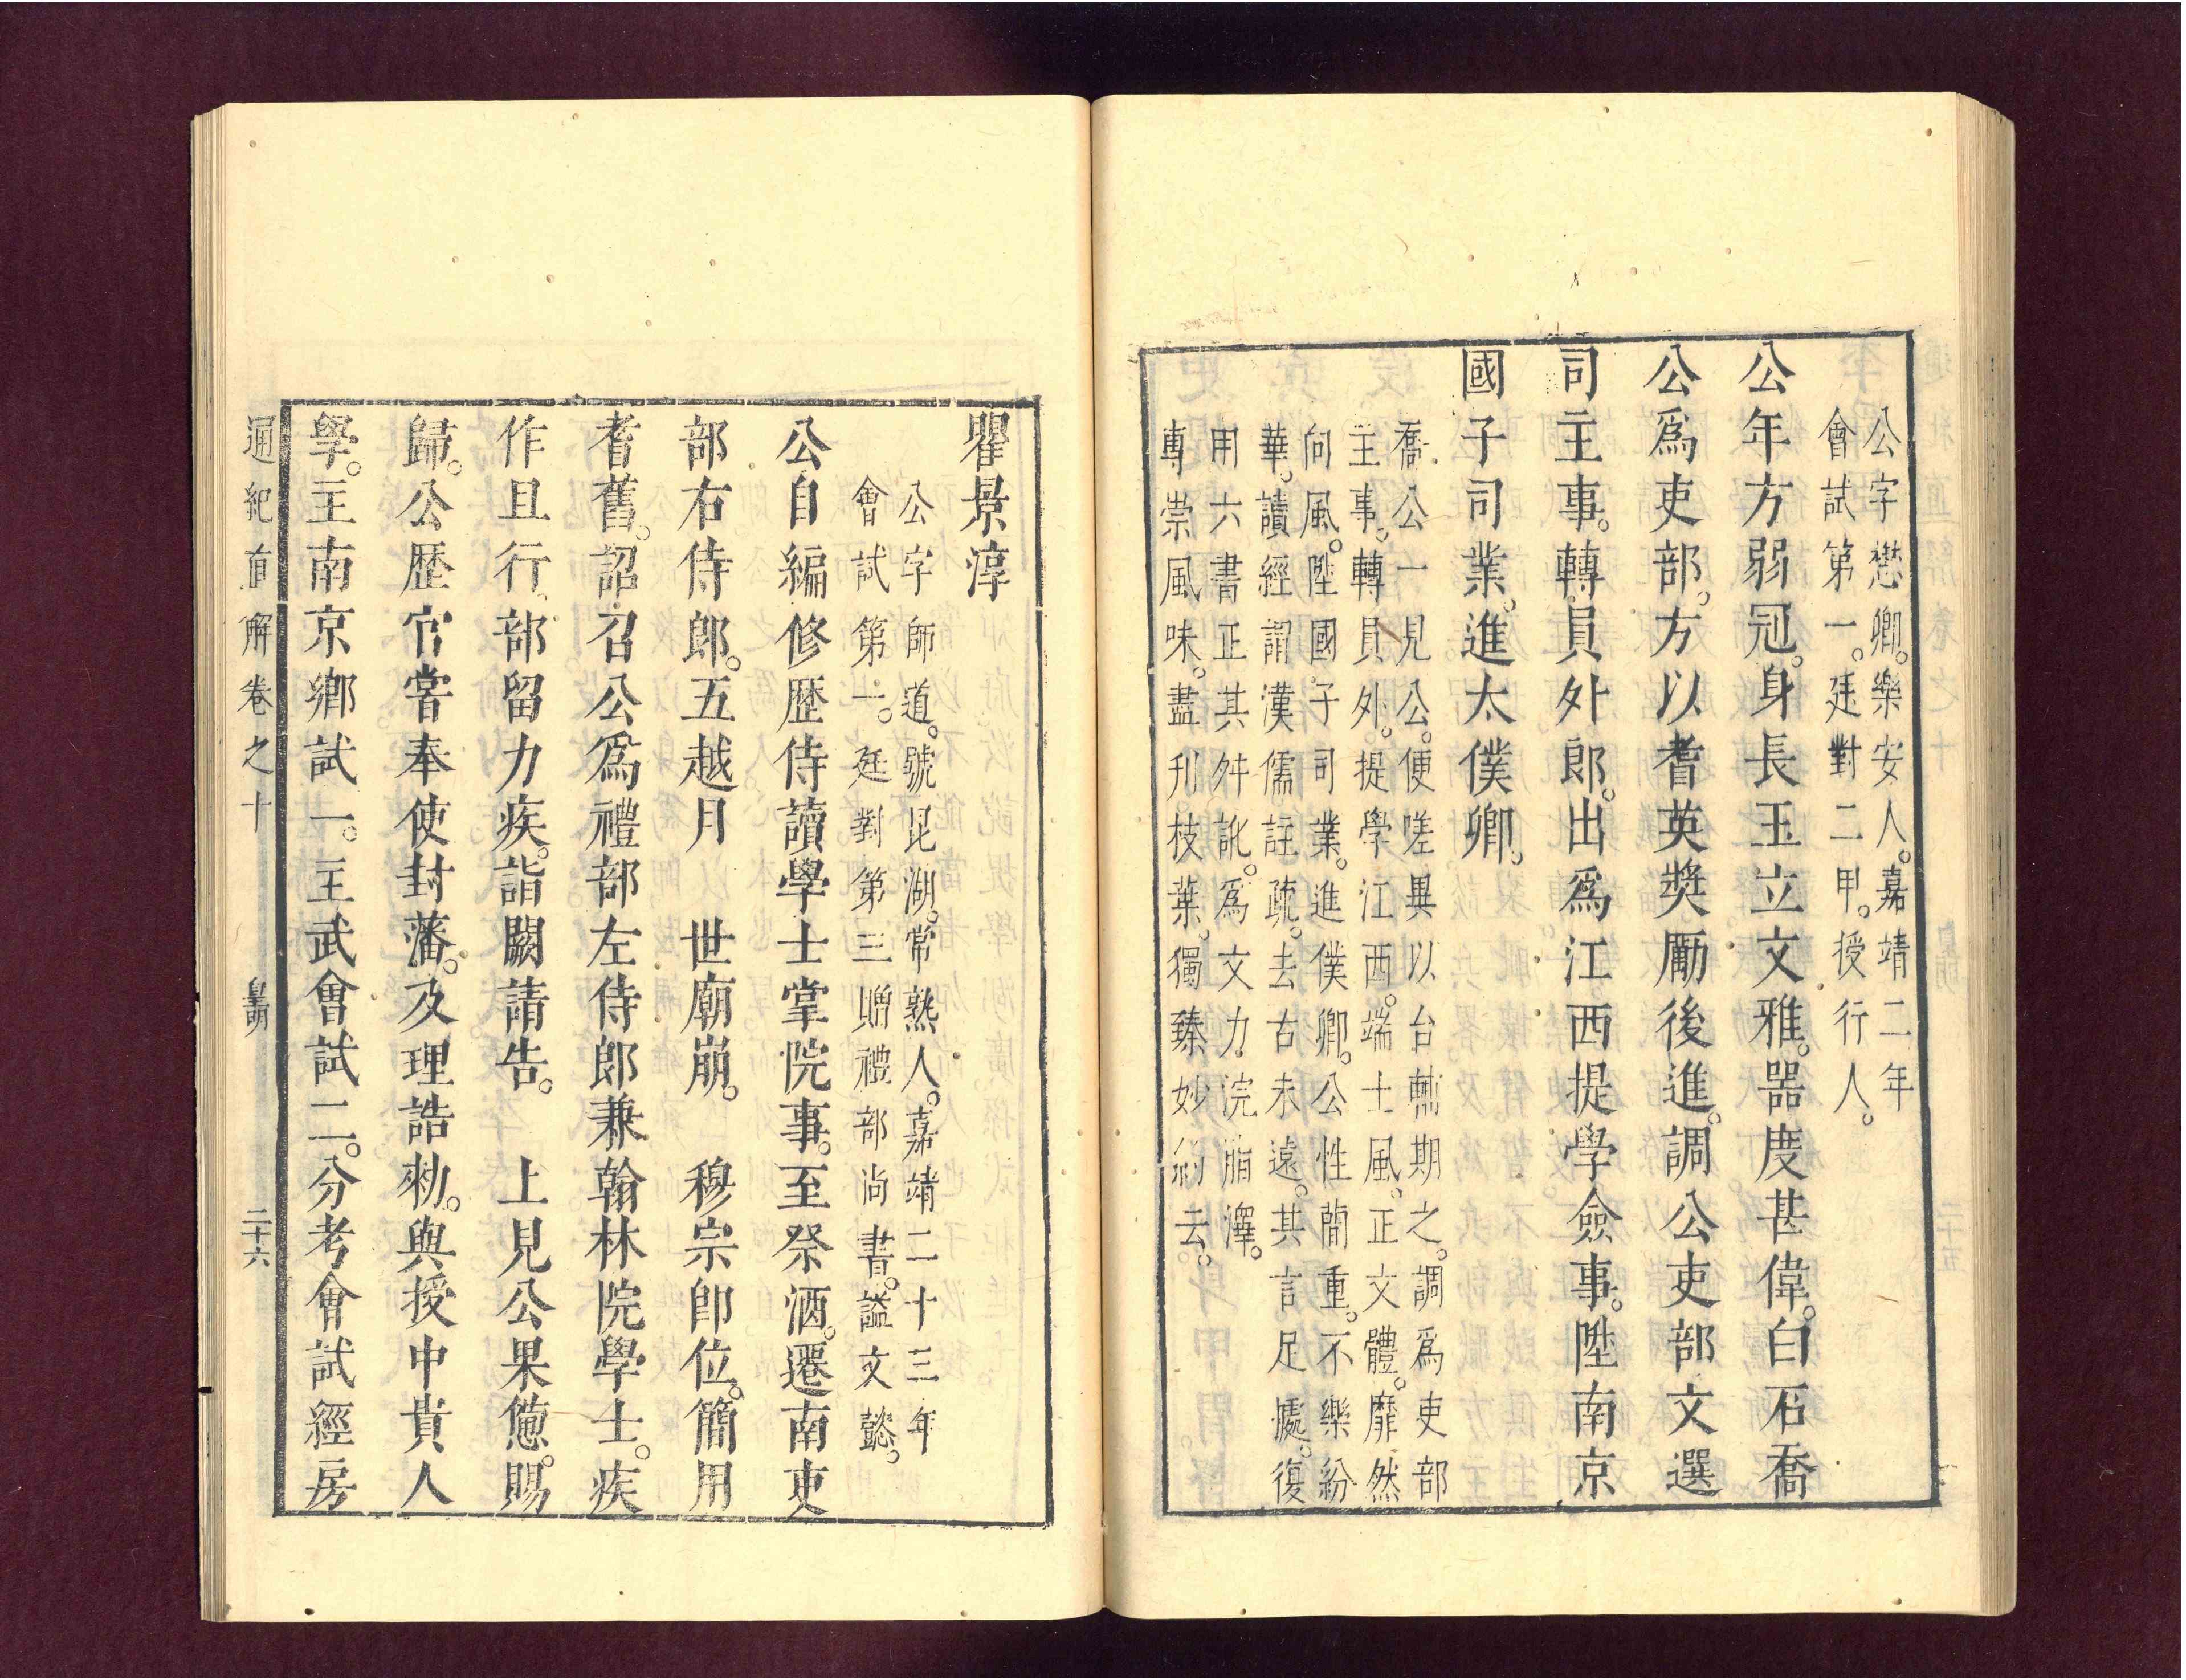 公字懋卿。樂安人。嘉靖二年
會試第一。廷對二甲。授行人。
公年方弱冠。身長玉立文雅。器度甚偉。白石喬
公爲吏部。方以耆英奬勵後進。調公吏部文選
司主事。轉員外郎。出爲江西提學僉事。陞南京
國子司業。進太僕卿。
喬公一見公。便嗟異以台輔期之。調爲吏部
主事。轉員外。提學江西。端士風。正文體。靡然
向風。陞國子司業。進僕卿。公性簡重。不樂紛
華。讀經謂漢儒註疏。去古未遠。其言足處。復
用六書正其舛訛。爲文力浣脂澤。
專崇風味。盡刋枝葉。獨臻妙云。
瞿景淳
公字師道。號昆湖。常熟人。嘉靖二十三年
會試第一。廷對第三贈禮部尚書。諡文懿。
公自編修歷侍讀學士掌院事。至祭酒。遷南吏
部右侍郎。五越月　世廟崩。　穆宗卽位。簡用
耆舊。詔召公爲禮部左侍郎兼翰林院學士。疾
作且行。部留力疾。詣闕請告。　上見公果憊。賜
歸。公歷官嘗奉使封藩。及理誥勑。與授中貴人
學。主南京鄉試一。主武會試二。分考會試經房
通紀直解卷之十　皇明　二十六